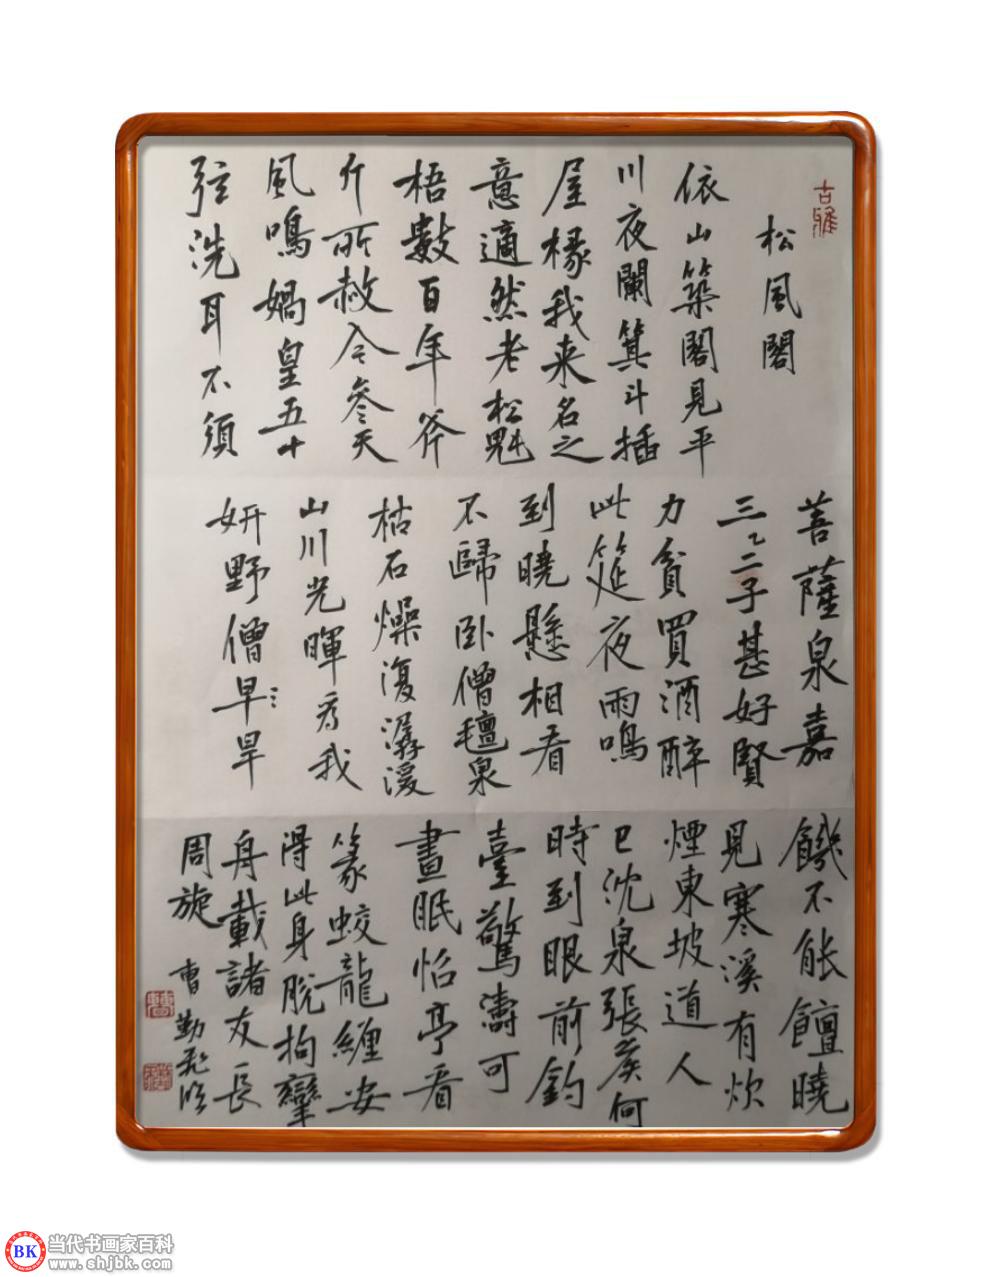 古雅
松風閣
依山築閣見平
川夜闌箕斗插
屋椽我来名之
意適然老松魁
梧數百年斧
斤所赦今參天
風鳴媧皇五十
弦洗耳不須
菩薩泉嘉
三二三子甚好賢
力貧買酒醉
此筵夜雨鳴
到曉懸相看
不歸卧僧氊泉
枯石燥復潺湲
山川光暉為我
妍野僧早旱
饑不能饘曉
見寒溪有炊
煙東坡道人
已沈泉張侯何
時到眼前釣
臺驚濤可
晝眠怡亭看
篆蛟龍纏安
得此身脫拘攣
舟載諸友長
周旋
曹勤飛臨
BK
当代书画家百科
www.shjbk.com